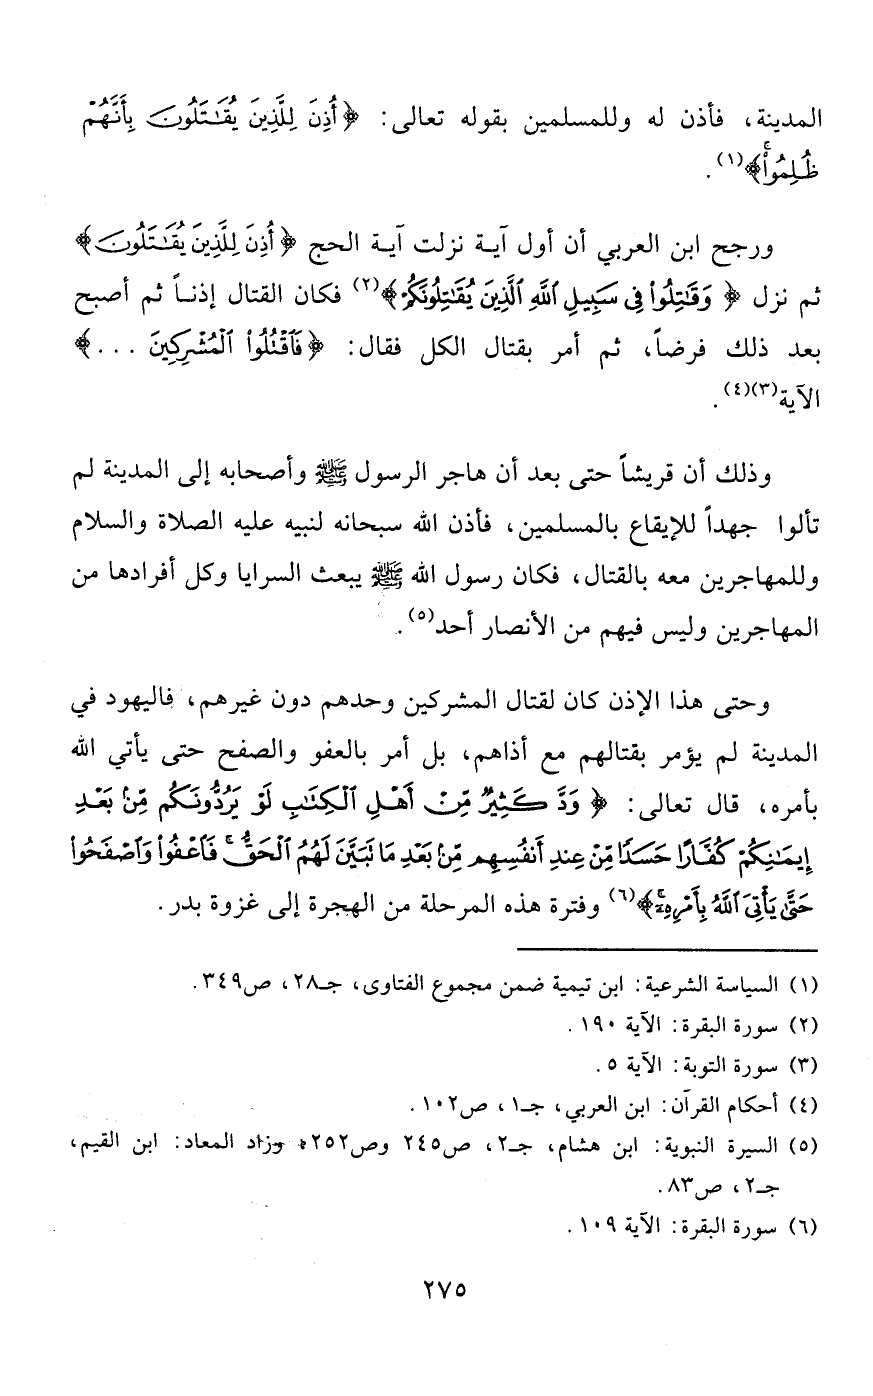 المدينة، فأذن له وللمسلمين بقوله تعالى: ﴿أُذِنَ لِلَّذِينَ يُقَٰتَلُونَ بِأَنَّهُمْ
ظُلِمُوا۟ۚ﴾(١).
ورجح ابن العربي أن أول آية نزلت آية الحج ﴿أُذِنَ لِلَّذِينَ يُقَٰتَلُونَ﴾
ثم نزل ﴿وَقَٰتِلُوا۟ فِى سَبِيلِ ٱللَّهِ ٱلَّذِينَ يُقَٰتِلُونَكُمْ﴾(٢) فكان القتال إذناً ثم أصبح
بعد ذلك فرضاً، ثم أمر بقتال الكل فقال: ﴿فَٱقْتُلُوا۟ ٱلْمُشْرِكِينَ ...﴾
الآية(٣)(٤).
وذلك أن قريشاً حتى بعد أن هاجر الرسول ﷺ وأصحابه إلى المدينة لم
تألوا جهداً للإيقاع بالمسلمين، فأذن الله سبحانه لنبيه عليه الصلاة والسلام
وللمهاجرين معه بالقتال، فكان رسول الله ﷺ يبعث السرايا وكل أفرادها من
المهاجرين وليس فيهم من الأنصار أحد(٥).
وحتى هذا الإذن كان لقتال المشركين وحدهم دون غيرهم، فاليهود في
المدينة لم يؤمر بقتالهم مع أذاهم، بل أمر بالعفو والصفح حتى يأتي الله
بأمره، قال تعالى: ﴿وَدَّ كَثِيرٌ مِّنْ أَهْلِ ٱلْكِتَٰبِ لَوْ يَرُدُّونَكُم مِّنۢ بَعْدِ
إِيمَٰنِكُمْ كُفَّارًا حَسَدًا مِّنْ عِندِ أَنفُسِهِم مِّنۢ بَعْدِ مَا تَبَيَّنَ لَهُمُ ٱلْحَقُّۖ فَٱعْفُوا۟ وَٱصْفَحُوا۟
حَتَّىٰ يَأْتِىَ ٱللَّهُ بِأَمْرِهِۦٓۚ﴾(٦) وفترة هذه المرحلة من الهجرة إلى غزوة بدر.
(١) السياسة الشرعية: ابن تيمية ضمن مجموع الفتاوى، جـ٢٨، ص٣٤٩.
(٢) سورة البقرة: الآية ١٩٠.
(٣) سورة التوبة: الآية ٥.
(٤) أحكام القرآن: ابن العربي، جـ١، ص١٠٢.
(٥) السيرة النبوية: ابن هشام، جـ٢، ص٢٤٥ وص٢٥٢، وزاد المعاد: ابن القيم،
جـ٢، ص٨٣.
(٦) سورة البقرة: الآية ١٠٩.
٢٧٥